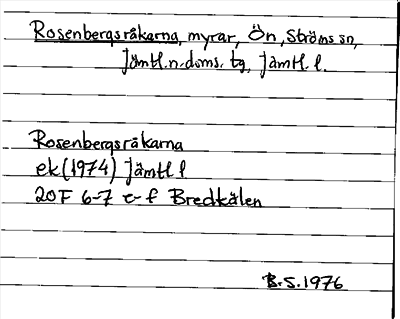 Rosenbergsråkarna, myrar, Ön, Ströms sn,
Jämtl.n.doms. tg, Jämtl l.
Rosenbergsråkarna
ek (1974) Jämtl l
20F 6-7 e-f Bredkälen
B.S.1976